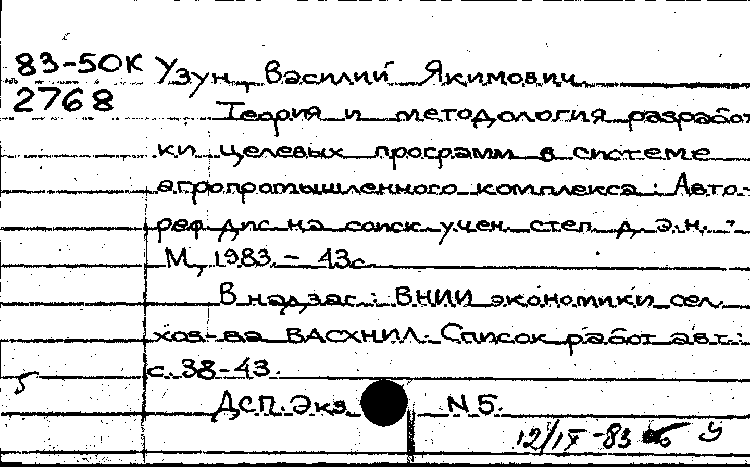 83-50К Узун, Василий Якимович
2768 Теория и методология разработ
ки целевых программ в системе
агропромышленного комплекса: Авто-
реф. дис. на соиск. учен. степ. д. э. н. -
М., 1983. - 43с.
В надзаг.: ВНИИ экономики сел.
хоз-ва ВАСХНИЛ. Список работ авт.:
с. 38-43.
5
ДСП. Экз. N 5.
12/IX-83